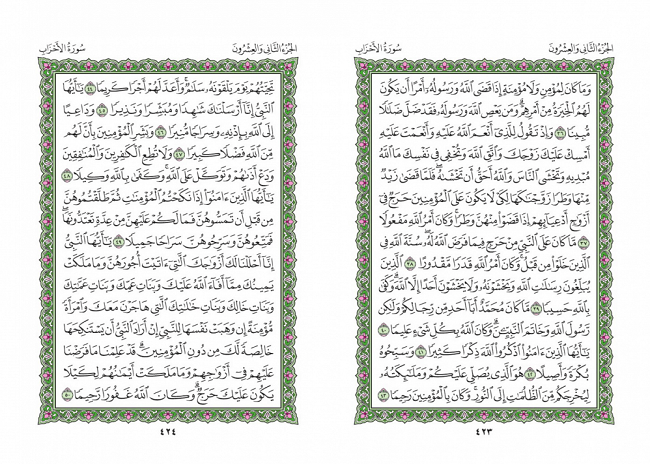 الجزء الثاني والعشرون
سورة الأحزاب
وَمَا كَانَ لِمُؤْمِنٍ وَلَا مُؤْمِنَةٍ إِذَا قَضَى ٱللَّهُ وَرَسُولُهُۥٓ أَمْرًا أَن يَكُونَ
لَهُمُ ٱلْخِيَرَةُ مِنْ أَمْرِهِمْ ۗ وَمَن يَعْصِ ٱللَّهَ وَرَسُولَهُۥ فَقَدْ ضَلَّ ضَلَٰلًا
مُّبِينًا ٣٦ وَإِذْ تَقُولُ لِلَّذِىٓ أَنْعَمَ ٱللَّهُ عَلَيْهِ وَأَنْعَمْتَ عَلَيْهِ
أَمْسِكْ عَلَيْكَ زَوْجَكَ وَٱتَّقِ ٱللَّهَ وَتُخْفِى فِى نَفْسِكَ مَا ٱللَّهُ
مُبْدِيهِ وَتَخْشَى ٱلنَّاسَ وَٱللَّهُ أَحَقُّ أَن تَخْشَىٰهُ ۖ فَلَمَّا قَضَىٰ زَيْدٌ
مِّنْهَا وَطَرًا زَوَّجْنَٰكَهَا لِكَىْ لَا يَكُونَ عَلَى ٱلْمُؤْمِنِينَ حَرَجٌ فِىٓ
أَزْوَٰجِ أَدْعِيَآئِهِمْ إِذَا قَضَوْا۟ مِنْهُنَّ وَطَرًا ۚ وَكَانَ أَمْرُ ٱللَّهِ مَفْعُولًا
٣٧ مَّا كَانَ عَلَى ٱلنَّبِىِّ مِنْ حَرَجٍ فِيمَا فَرَضَ ٱللَّهُ لَهُۥ ۖ سُنَّةَ ٱللَّهِ فِى
ٱلَّذِينَ خَلَوْا۟ مِن قَبْلُ ۚ وَكَانَ أَمْرُ ٱللَّهِ قَدَرًا مَّقْدُورًا ٣٨ ٱلَّذِينَ
يُبَلِّغُونَ رِسَٰلَٰتِ ٱللَّهِ وَيَخْشَوْنَهُۥ وَلَا يَخْشَوْنَ أَحَدًا إِلَّا ٱللَّهَ ۗ وَكَفَىٰ
بِٱللَّهِ حَسِيبًا ٣٩ مَّا كَانَ مُحَمَّدٌ أَبَآ أَحَدٍ مِّن رِّجَالِكُمْ وَلَٰكِن
رَّسُولَ ٱللَّهِ وَخَاتَمَ ٱلنَّبِيِّۦنَ ۗ وَكَانَ ٱللَّهُ بِكُلِّ شَىْءٍ عَلِيمًا ٤٠
يَٰٓأَيُّهَا ٱلَّذِينَ ءَامَنُوا۟ ٱذْكُرُوا۟ ٱللَّهَ ذِكْرًا كَثِيرًا ٤١ وَسَبِّحُوهُ
بُكْرَةً وَأَصِيلًا ٤٢ هُوَ ٱلَّذِى يُصَلِّى عَلَيْكُمْ وَمَلَٰٓئِكَتُهُۥ
لِيُخْرِجَكُم مِّنَ ٱلظُّلُمَٰتِ إِلَى ٱلنُّورِ ۚ وَكَانَ بِٱلْمُؤْمِنِينَ رَحِيمًا ٤٣
٤٢٣
الجزء الثاني والعشرون
سورة الأحزاب
تَحِيَّتُهُمْ يَوْمَ يَلْقَوْنَهُۥ سَلَٰمٌ ۚ وَأَعَدَّ لَهُمْ أَجْرًا كَرِيمًا ٤٤ يَٰٓأَيُّهَا
ٱلنَّبِىُّ إِنَّآ أَرْسَلْنَٰكَ شَٰهِدًا وَمُبَشِّرًا وَنَذِيرًا ٤٥ وَدَاعِيًا
إِلَى ٱللَّهِ بِإِذْنِهِۦ وَسِرَاجًا مُّنِيرًا ٤٦ وَبَشِّرِ ٱلْمُؤْمِنِينَ بِأَنَّ لَهُم
مِّنَ ٱللَّهِ فَضْلًا كَبِيرًا ٤٧ وَلَا تُطِعِ ٱلْكَٰفِرِينَ وَٱلْمُنَٰفِقِينَ
وَدَعْ أَذَىٰهُمْ وَتَوَكَّلْ عَلَى ٱللَّهِ ۚ وَكَفَىٰ بِٱللَّهِ وَكِيلًا ٤٨
يَٰٓأَيُّهَا ٱلَّذِينَ ءَامَنُوٓا۟ إِذَا نَكَحْتُمُ ٱلْمُؤْمِنَٰتِ ثُمَّ طَلَّقْتُمُوهُنَّ
مِن قَبْلِ أَن تَمَسُّوهُنَّ فَمَا لَكُمْ عَلَيْهِنَّ مِنْ عِدَّةٍ تَعْتَدُّونَهَا ۖ
فَمَتِّعُوهُنَّ وَسَرِّحُوهُنَّ سَرَاحًا جَمِيلًا ٤٩ يَٰٓأَيُّهَا ٱلنَّبِىُّ
إِنَّآ أَحْلَلْنَا لَكَ أَزْوَٰجَكَ ٱلَّٰتِىٓ ءَاتَيْتَ أُجُورَهُنَّ وَمَا مَلَكَتْ
يَمِينُكَ مِمَّآ أَفَآءَ ٱللَّهُ عَلَيْكَ وَبَنَاتِ عَمِّكَ وَبَنَاتِ عَمَّٰتِكَ
وَبَنَاتِ خَالِكَ وَبَنَاتِ خَٰلَٰتِكَ ٱلَّٰتِى هَاجَرْنَ مَعَكَ وَٱمْرَأَةً
مُّؤْمِنَةً إِن وَهَبَتْ نَفْسَهَا لِلنَّبِىِّ إِنْ أَرَادَ ٱلنَّبِىُّ أَن يَسْتَنكِحَهَا
خَالِصَةً لَّكَ مِن دُونِ ٱلْمُؤْمِنِينَ ۗ قَدْ عَلِمْنَا مَا فَرَضْنَا
عَلَيْهِمْ فِىٓ أَزْوَٰجِهِمْ وَمَا مَلَكَتْ أَيْمَٰنُهُمْ لِكَيْلَا
يَكُونَ عَلَيْكَ حَرَجٌ ۗ وَكَانَ ٱللَّهُ غَفُورًا رَّحِيمًا ٥٠
٤٢٤